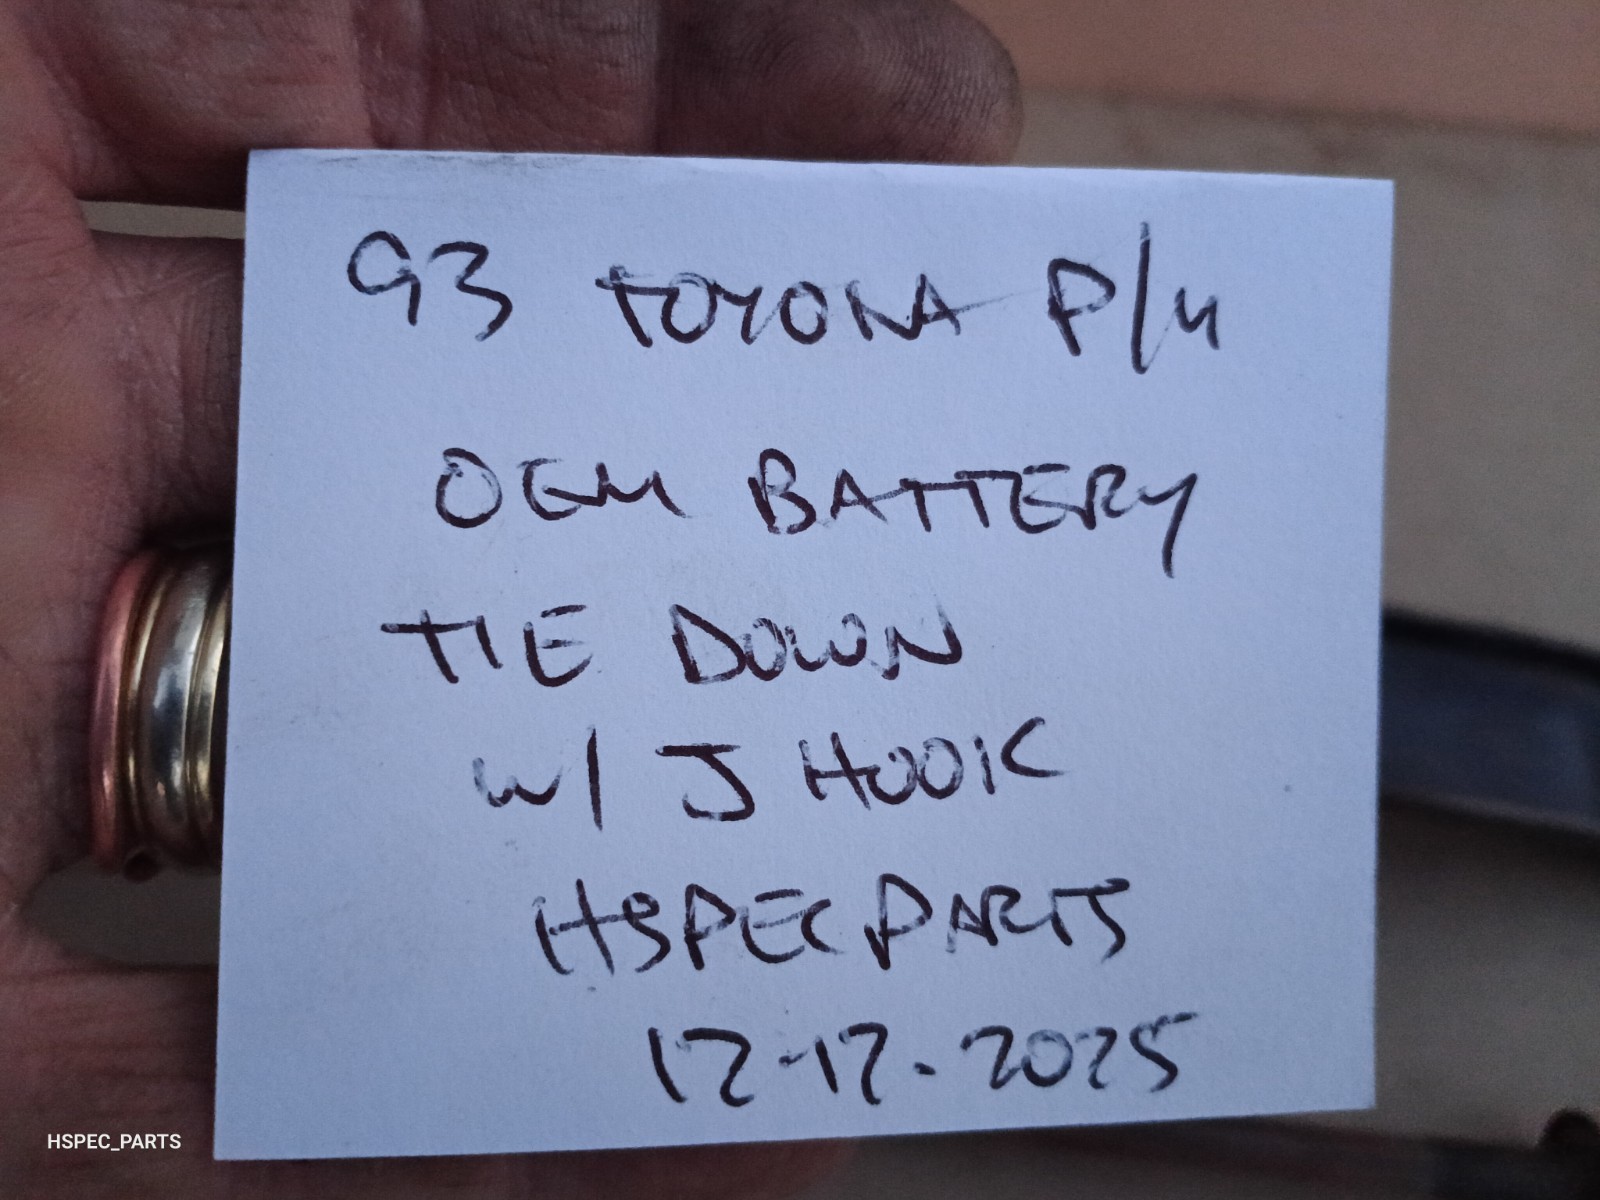 93 TOYOTA P/U
OEM BATTERY
TIE DOWN
W/ J HOOK
HSPEC PARTS
12-12-2025
HSPEC_PARTS